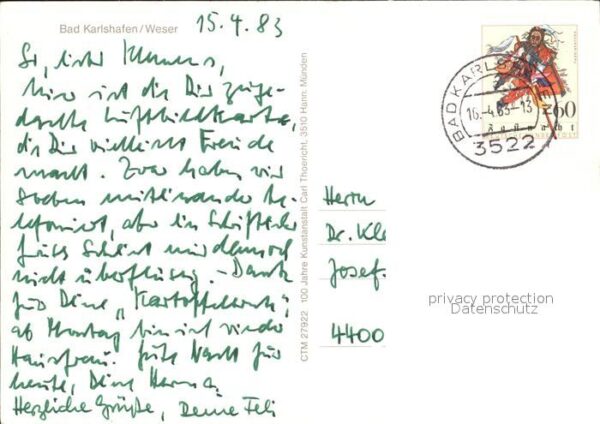 Bad Karlshafen / Weser
15.4.83
So, lieber Klemens,
hier ist die Dir zuge-
dachte Luftbildkarte,
die Dir vielleicht Freude
macht. Zwar haben wir
soeben miteinander te-
lefoniert, aber ein Schriftlicher
Gruß scheint mir dennoch
nicht überflüssig. - Dank
für Deine "Kartoffelwerk",
ab Montag bin ich wieder
Hausfrau. Gute Nacht für
heute, Deine
Herzliche Grüße, Deine Feli
CTM 27922 100 Jahre Kunstanstalt Carl Thoericht, 3510 Hann. Münden
BAD KARLSHAFEN
16.-4.83-13
3522
60
Herrn
Dr. Kle
Josef-
4400
privacy protection
Datenschutz